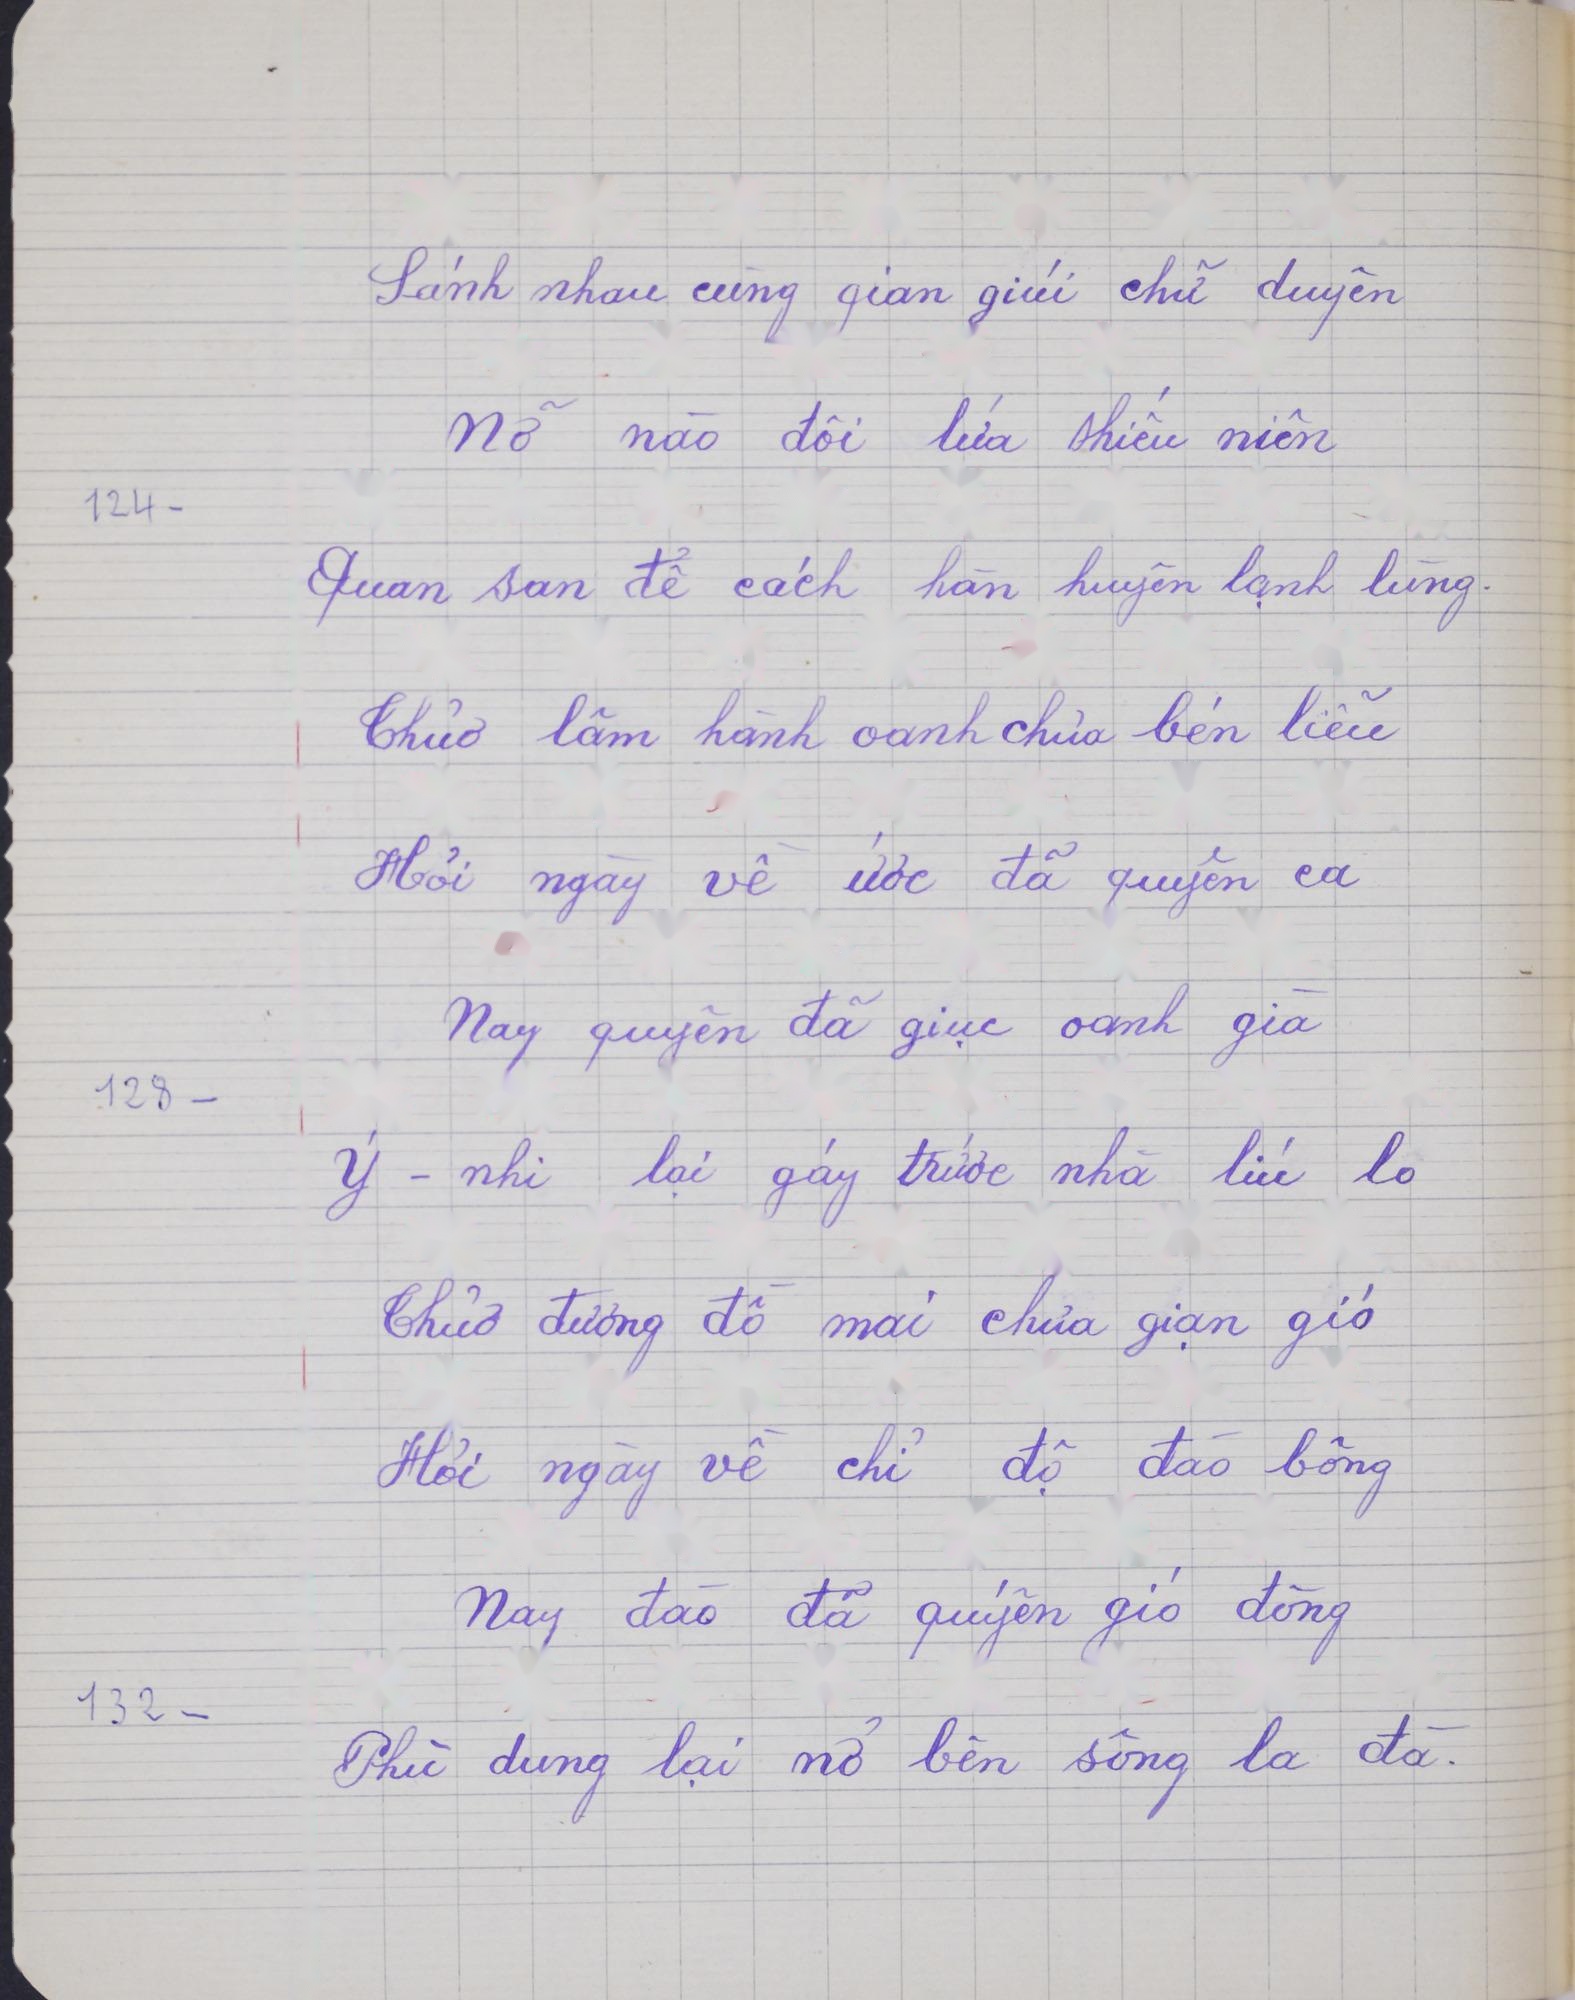 Sánh nhau cùng gian giúi chữ duyên
Nỡ nào đôi lứa thiếu niên
124-
Quan san để cách hàn huyên lạnh lùng.
Thuở lâm hành oanh chửa bén liễu
Hỏi ngày về ước đã quyên ca
Nay quyên đã giục oanh già
128-
Ý - nhi lại gáy trước nhà líu lo
Thuở đương đồ mai chửa giạn gió
Hỏi ngày về chỉ độ đào bông
Nay đào đã quyến gió đông
132-
Phù dung lại nở bên sông la đà.